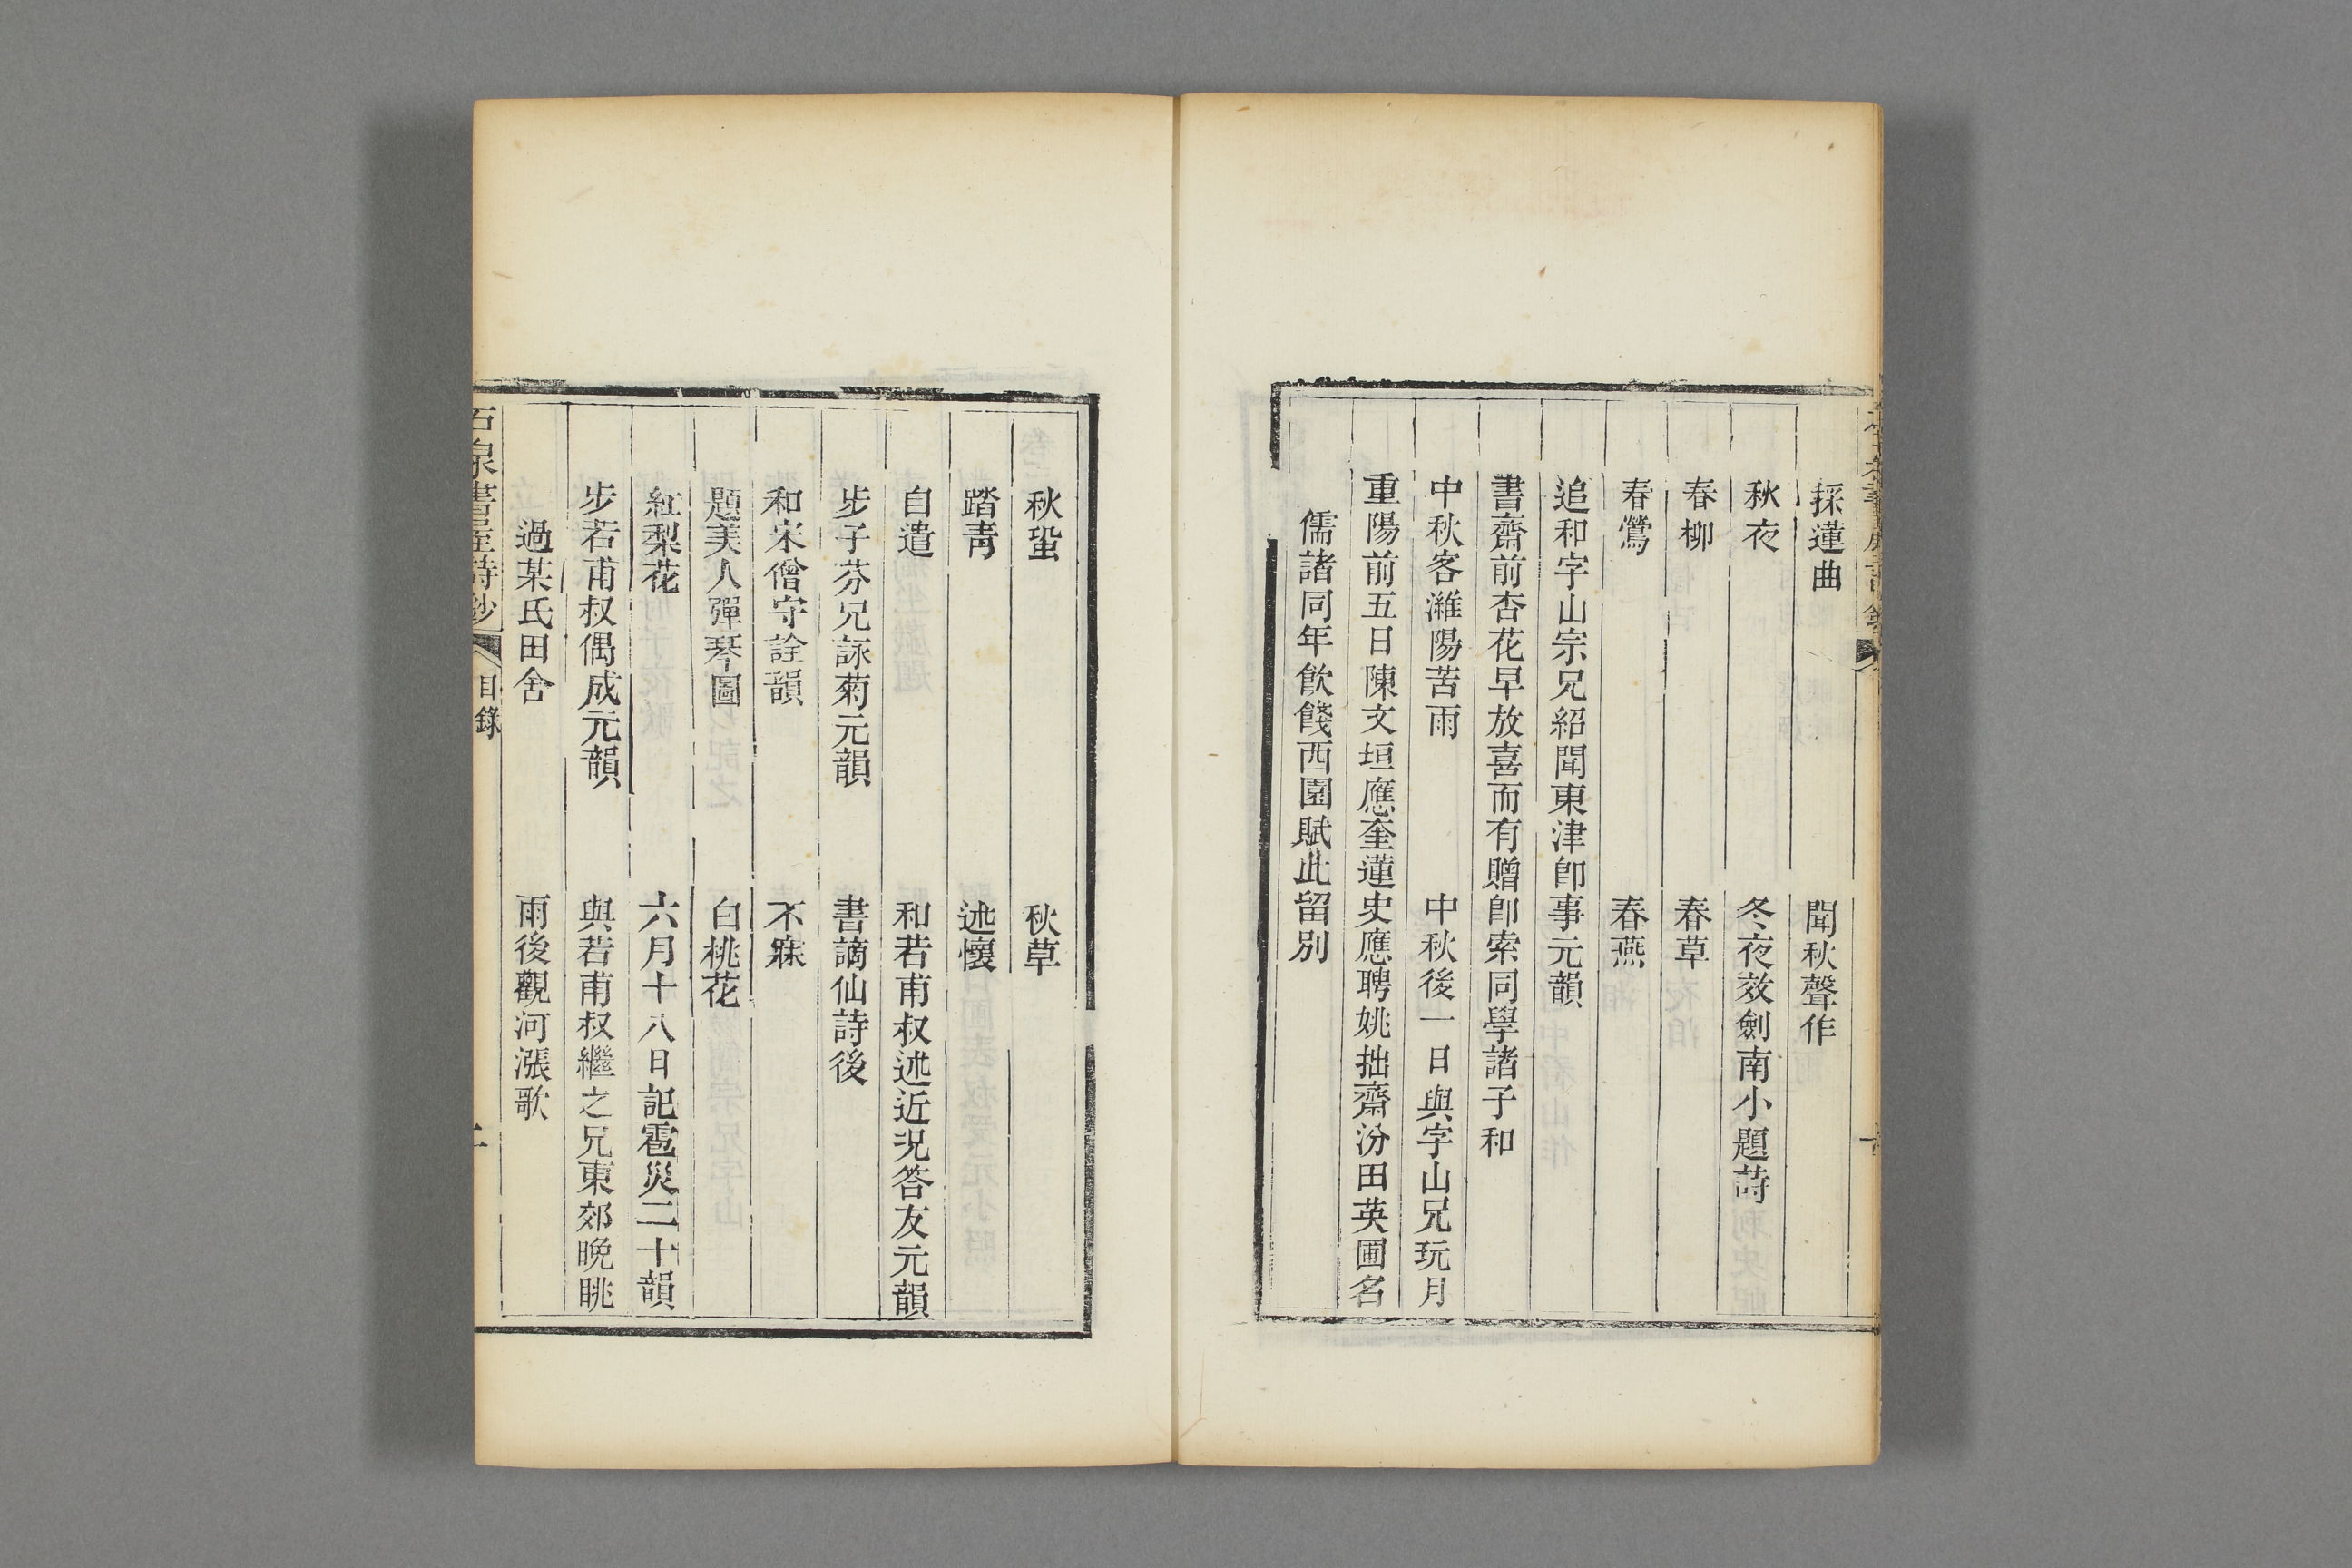 採蓮曲　聞秋聲作
秋夜　冬夜效劍南小題詩
春柳　春草
春鶯　春燕
追和字山宗兄紹聞東津卽事元韻
書齋前杏花早放喜而有贈卽索同學諸子和
中秋客濰陽苦雨　中秋後一日與字山兄玩月
重陽前五日陳文垣應奎蓮史應聘姚拙齋汾田英圃名
儒諸同年飮餞西園賦此留別
秋蛩　秋草
踏靑　述懷
自遣　和若甫叔述近況答友元韻
步子芬兄詠菊元韻　書謫仙詩後
和宋僧守詮韻　不寐
題美人彈琴圖　白桃花
紅梨花　六月十八日記雹災二十韻
步若甫叔偶成元韻　與若甫叔繼之兄東郊晚眺
過某氏田舍　雨後觀河漲歌
石泉書屋詩鈔　目錄　二